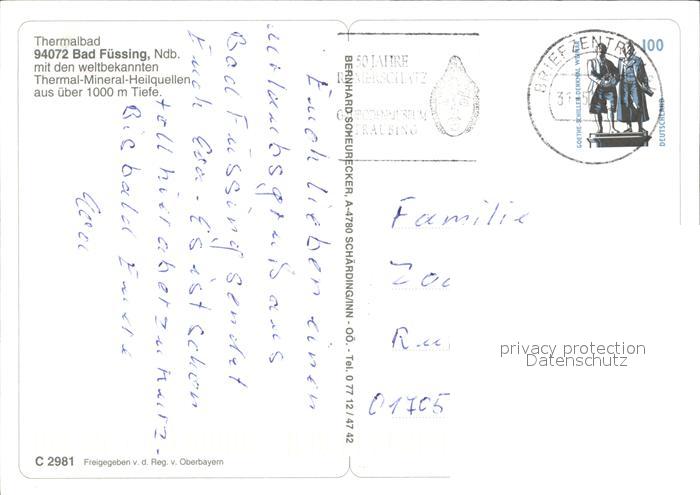 Thermalbad
94072 Bad Füssing, Ndb.
mit den weltbekannten
Thermal-Mineral-Heilquellen
aus über 1000 m Tiefe.
Euch lieben einen
Urlaubsgruß aus
Bad Füssing sendet
Euch Eva. Es ist schon
toll hier aber zu kurz.
Bis bald Eure
Eva
C 2981 Freigegeben v. d. Reg. v. Oberbayern
BERNHARD SCHEURECKER, A-4780 SCHÄRDING/INN - OÖ. - Tel. 0 77 12 / 47 42
50 JAHRE
RÖMERSCHATZ
GÄUBODENMUSEUM
STRAUBING
BRIEFZENTRUM
31
GOETHE-SCHILLER-DENKMAL WEIMAR
100
DEUTSCHLAND
Familie
01705
privacy protection
Datenschutz